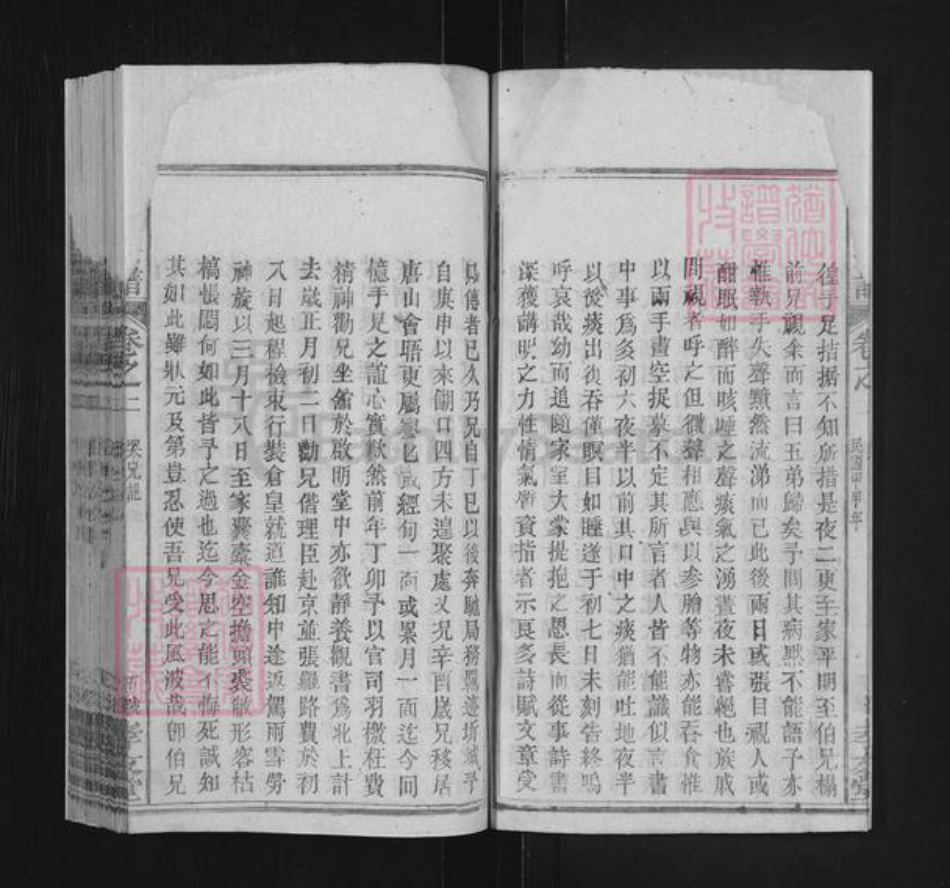 徨手足拮据不知所措是夜二更至家平明至伯兄榻
前兄視余而言曰五弟歸矣予問其病默不能語予亦
惟執手失聲黯然流涕而已此後兩日或張目視人或
酣眠如醉而咳唾之聲痰氣之湧晝夜未嘗絕也族戚
問視者呼之但微聲相應與以參膽等物亦能吞食惟
以兩手畫空捉摹不定其所言者人皆不能識似言書
中事為多初六夜半以前其口中之痰猶能吐地夜半
以後痰出復吞僅瞑目如睡遂于初七日未刻告終嗚
呼哀哉幼而追隨家室大蒙提抱之恩長而從事詩書
深獲講明之力性情氣質資指者示良多詩賦文章受
傳者已久乃兄自丁巳以後奔馳局務予
自庚申以來餬口四方未遑聚處又况辛酉歲兄移居
唐山會晤更屬寥匕或經旬一面或累月一面迄今回
憶手足之誼心實歉然前年丁卯予以官司羽檄枉費
精神勸兄坐館於啟明堂中亦欲靜養觀書為北上計
去歲正月初二日勸兄偕理臣赴京並張羅路費於初
八日起程檢束行裝倉皇就道誰知中途返駕雨雪勞
神旋以三月十八日至家囊橐金空擔頭裘敝形容枯
槁悵悶何如此皆予之過也迄今思之能不悔死誠知
其如此雖狀元及第豈忍使吾兄受此風波哉卽伯兄
譜
卷之二
哭兄